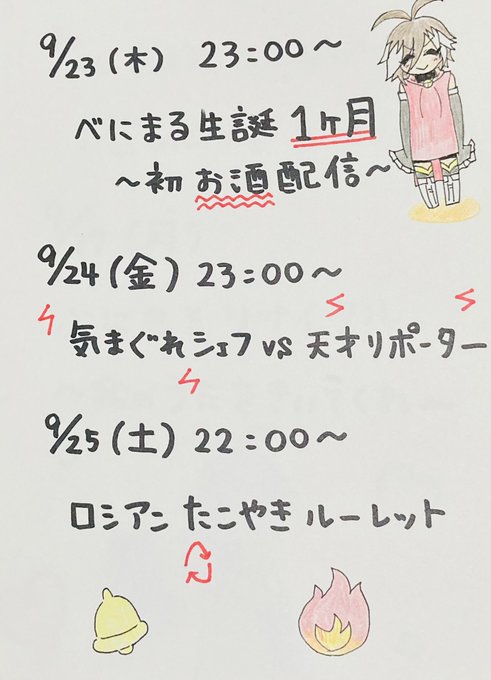 9/23(木) 23:00〜
べにまる生誕 1ヶ月
〜初 お酒 配信〜
9/24(金) 23:00〜
気まぐれシェフ vs 天才リポーター
9/25(土) 22:00〜
ロシアン たこやき ルーレット